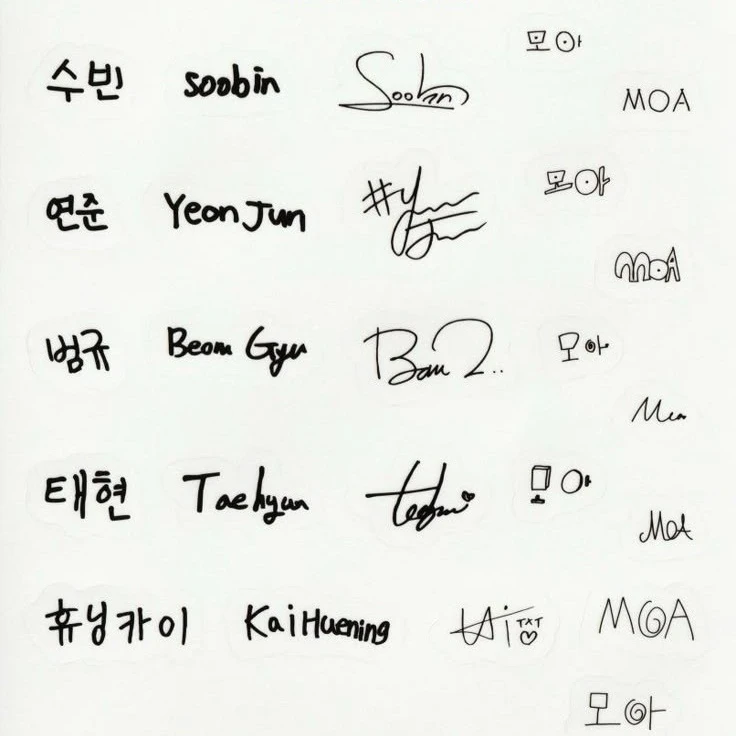 수빈 soobin Soobin 모아
MOA
연준 YeonJun #Yeon Jun 모아
MOA
범규 Beom Gyu Bam 2.. 모아
Moa
태현 Taehyun taehyun 모아
MOA
휴닝카이 KaiHuening KAi TXT MOA
모아